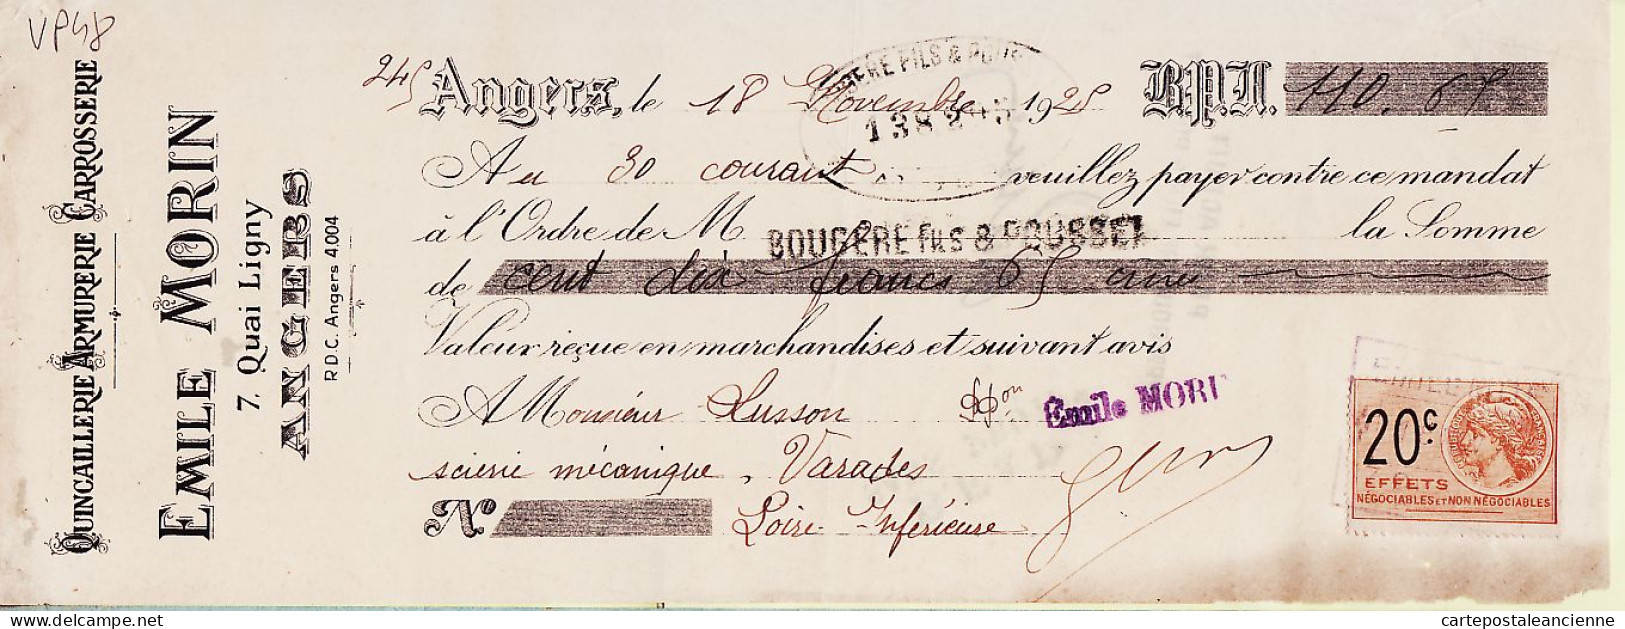 VP48
QUINCAILLERIE ARMURERIE CARROSSERIE
EMILE MORIN
7, Quai Ligny
ANGERS
R.D.C. Angers 4.004
245
Angers, le 18 Novembre 1925 B.P.F. 110.65
GÈRE FILS & POUS
138
Au 30 courant veuillez payer contre ce mandat
à l'Ordre de M BOUGÈRE FILS & POUSSET la Somme
de cent dix francs 65 cmes
Valeur reçue en marchandises et suivant avis
A Monsieur Lusson
Emile MORI
scierie mécanique, Varades
Nº Loire-Inférieure
20c.
EFFETS
NÉGOCIABLES ET NON NÉGOCIABLES
cartepostaleancienne